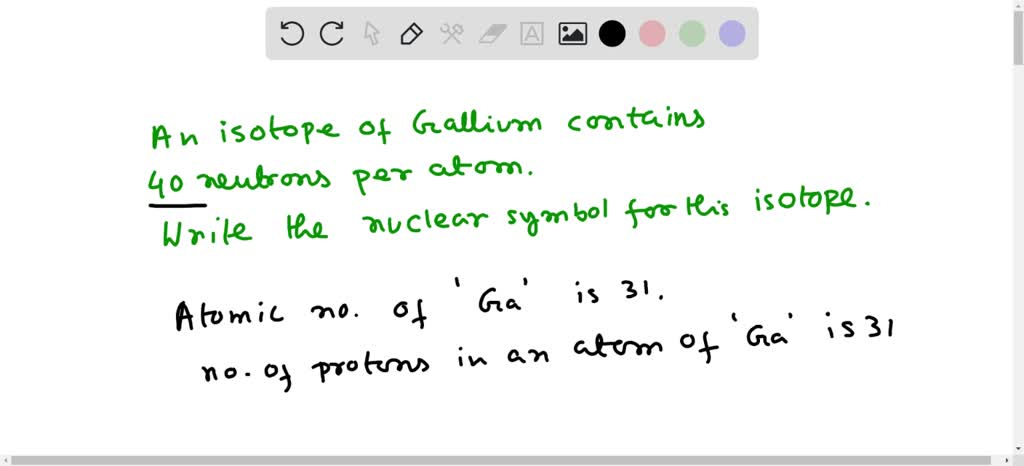 An isotope of Gallium contains
40 neutrons per atom.
Write the nuclear symbol for this isotope.
Atomic no. of 'Ga' is 31.
no. of protons in an atom of 'Ga' is 31